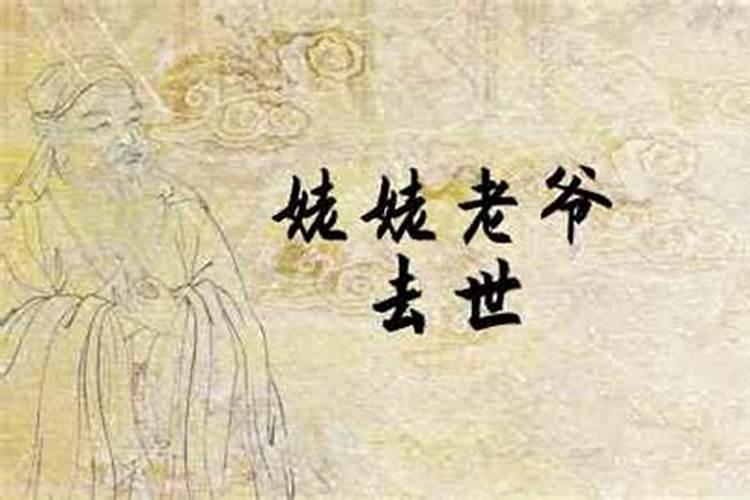 姥姥老爷
去世